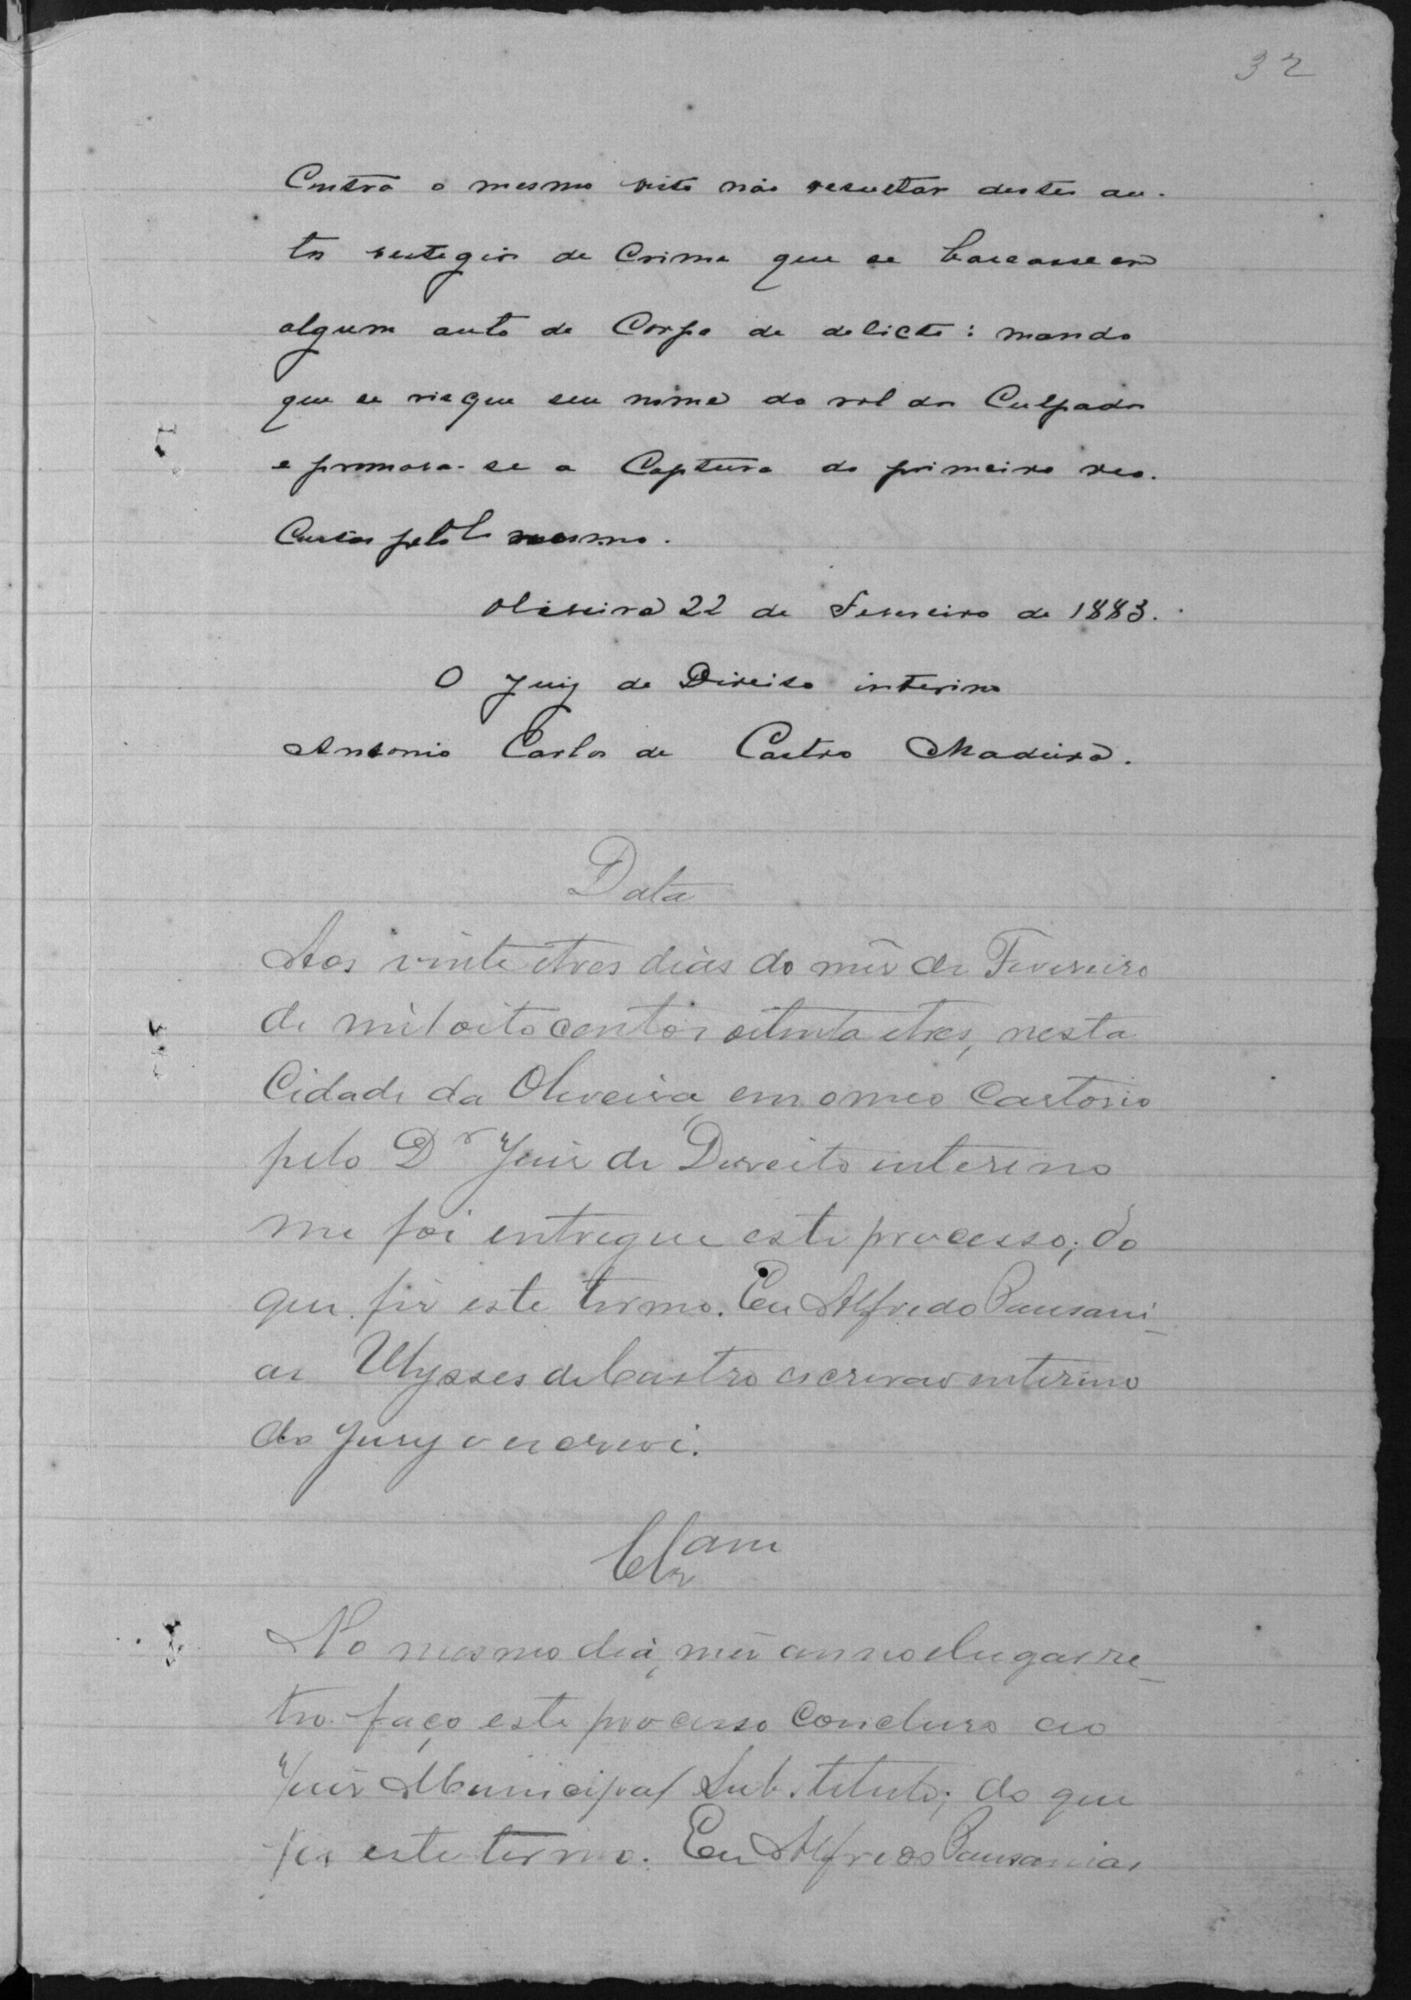 32
Contra o mesmo visto não resultar destes au-
tos vestigio de Crime que se baseasse em
algum auto de Corpo de delicto: mando
que se risque seu nome do rol dos Culpados
e promova-se a Captura do primeiro reo.
Custas pelo mesmo.
Oliveira 22 de Fevereiro de 1883.
O Juiz de Direito interino
Antonio Carlos de Castro Madeira.
Data
Aos vinte e tres dias do mês de Fevereiro
de mil oito centos oitenta e tres, nesta
Cidade da Oliveira, em o meo Cartorio
pelo Dr Juiz de Direito interino
me foi entregue este processo; do
que fiz este termo. Eu Alfredo Pausani-
as Ulysses de Castro escrivão interino
do Jury o escrevi.
Clzam
No mesmo dia, mês anno e lugar re-
tro faço este processo concluso ao
Juiz Municipal Substituto; do que
fiz este termo. Eu Alfredo Pausanias